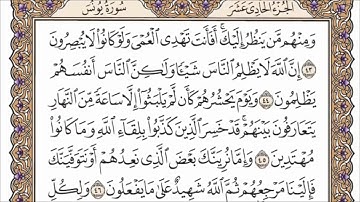 الجزء الحادي عشر
سورة يونس
وَمِنْهُم مَّن يَنظُرُ إِلَيْكَ ۚ أَفَأَنتَ تَهْدِي الْعُمْيَ وَلَوْ كَانُوا لَا يُبْصِرُونَ
٤٣ إِنَّ اللَّهَ لَا يَظْلِمُ النَّاسَ شَيْئًا وَلَٰكِنَّ النَّاسَ أَنفُسَهُمْ
يَظْلِمُونَ ٤٤ وَيَوْمَ يَحْشُرُهُمْ كَأَن لَّمْ يَلْبَثُوا إِلَّا سَاعَةً مِّنَ النَّهَارِ
يَتَعَارَفُونَ بَيْنَهُمْ ۚ قَدْ خَسِرَ الَّذِينَ كَذَّبُوا بِلِقَاءِ اللَّهِ وَمَا كَانُوا
مُهْتَدِينَ ٤٥ وَإِمَّا نُرِيَنَّكَ بَعْضَ الَّذِي نَعِدُهُمْ أَوْ نَتَوَفَّيَنَّكَ
فَإِلَيْنَا مَرْجِعُهُمْ ثُمَّ اللَّهُ شَهِيدٌ عَلَىٰ مَا يَفْعَلُونَ ٤٦ وَلِكُلِّ